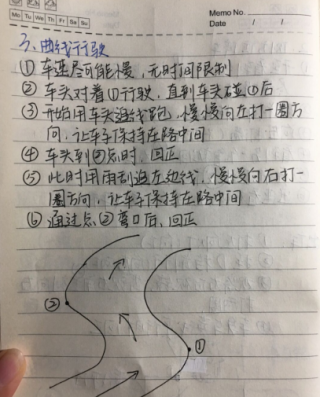 Memo No.
Mo Tu We Th Fr Sa Su
Date / /
3、曲线行驶
① 车速尽可能慢，无时间限制
② 车头对着①行驶，直到车头碰①后
③ 开始用车头追线跑，慢慢向左打一圈方
向，让车子保持在路中间
④ 车头到②点时，回正
⑤ 此时用雨刮追左边线，慢慢向右打一
圈方向，让车子保持在路中间
⑥ 通过点②弯口后，回正
②
①